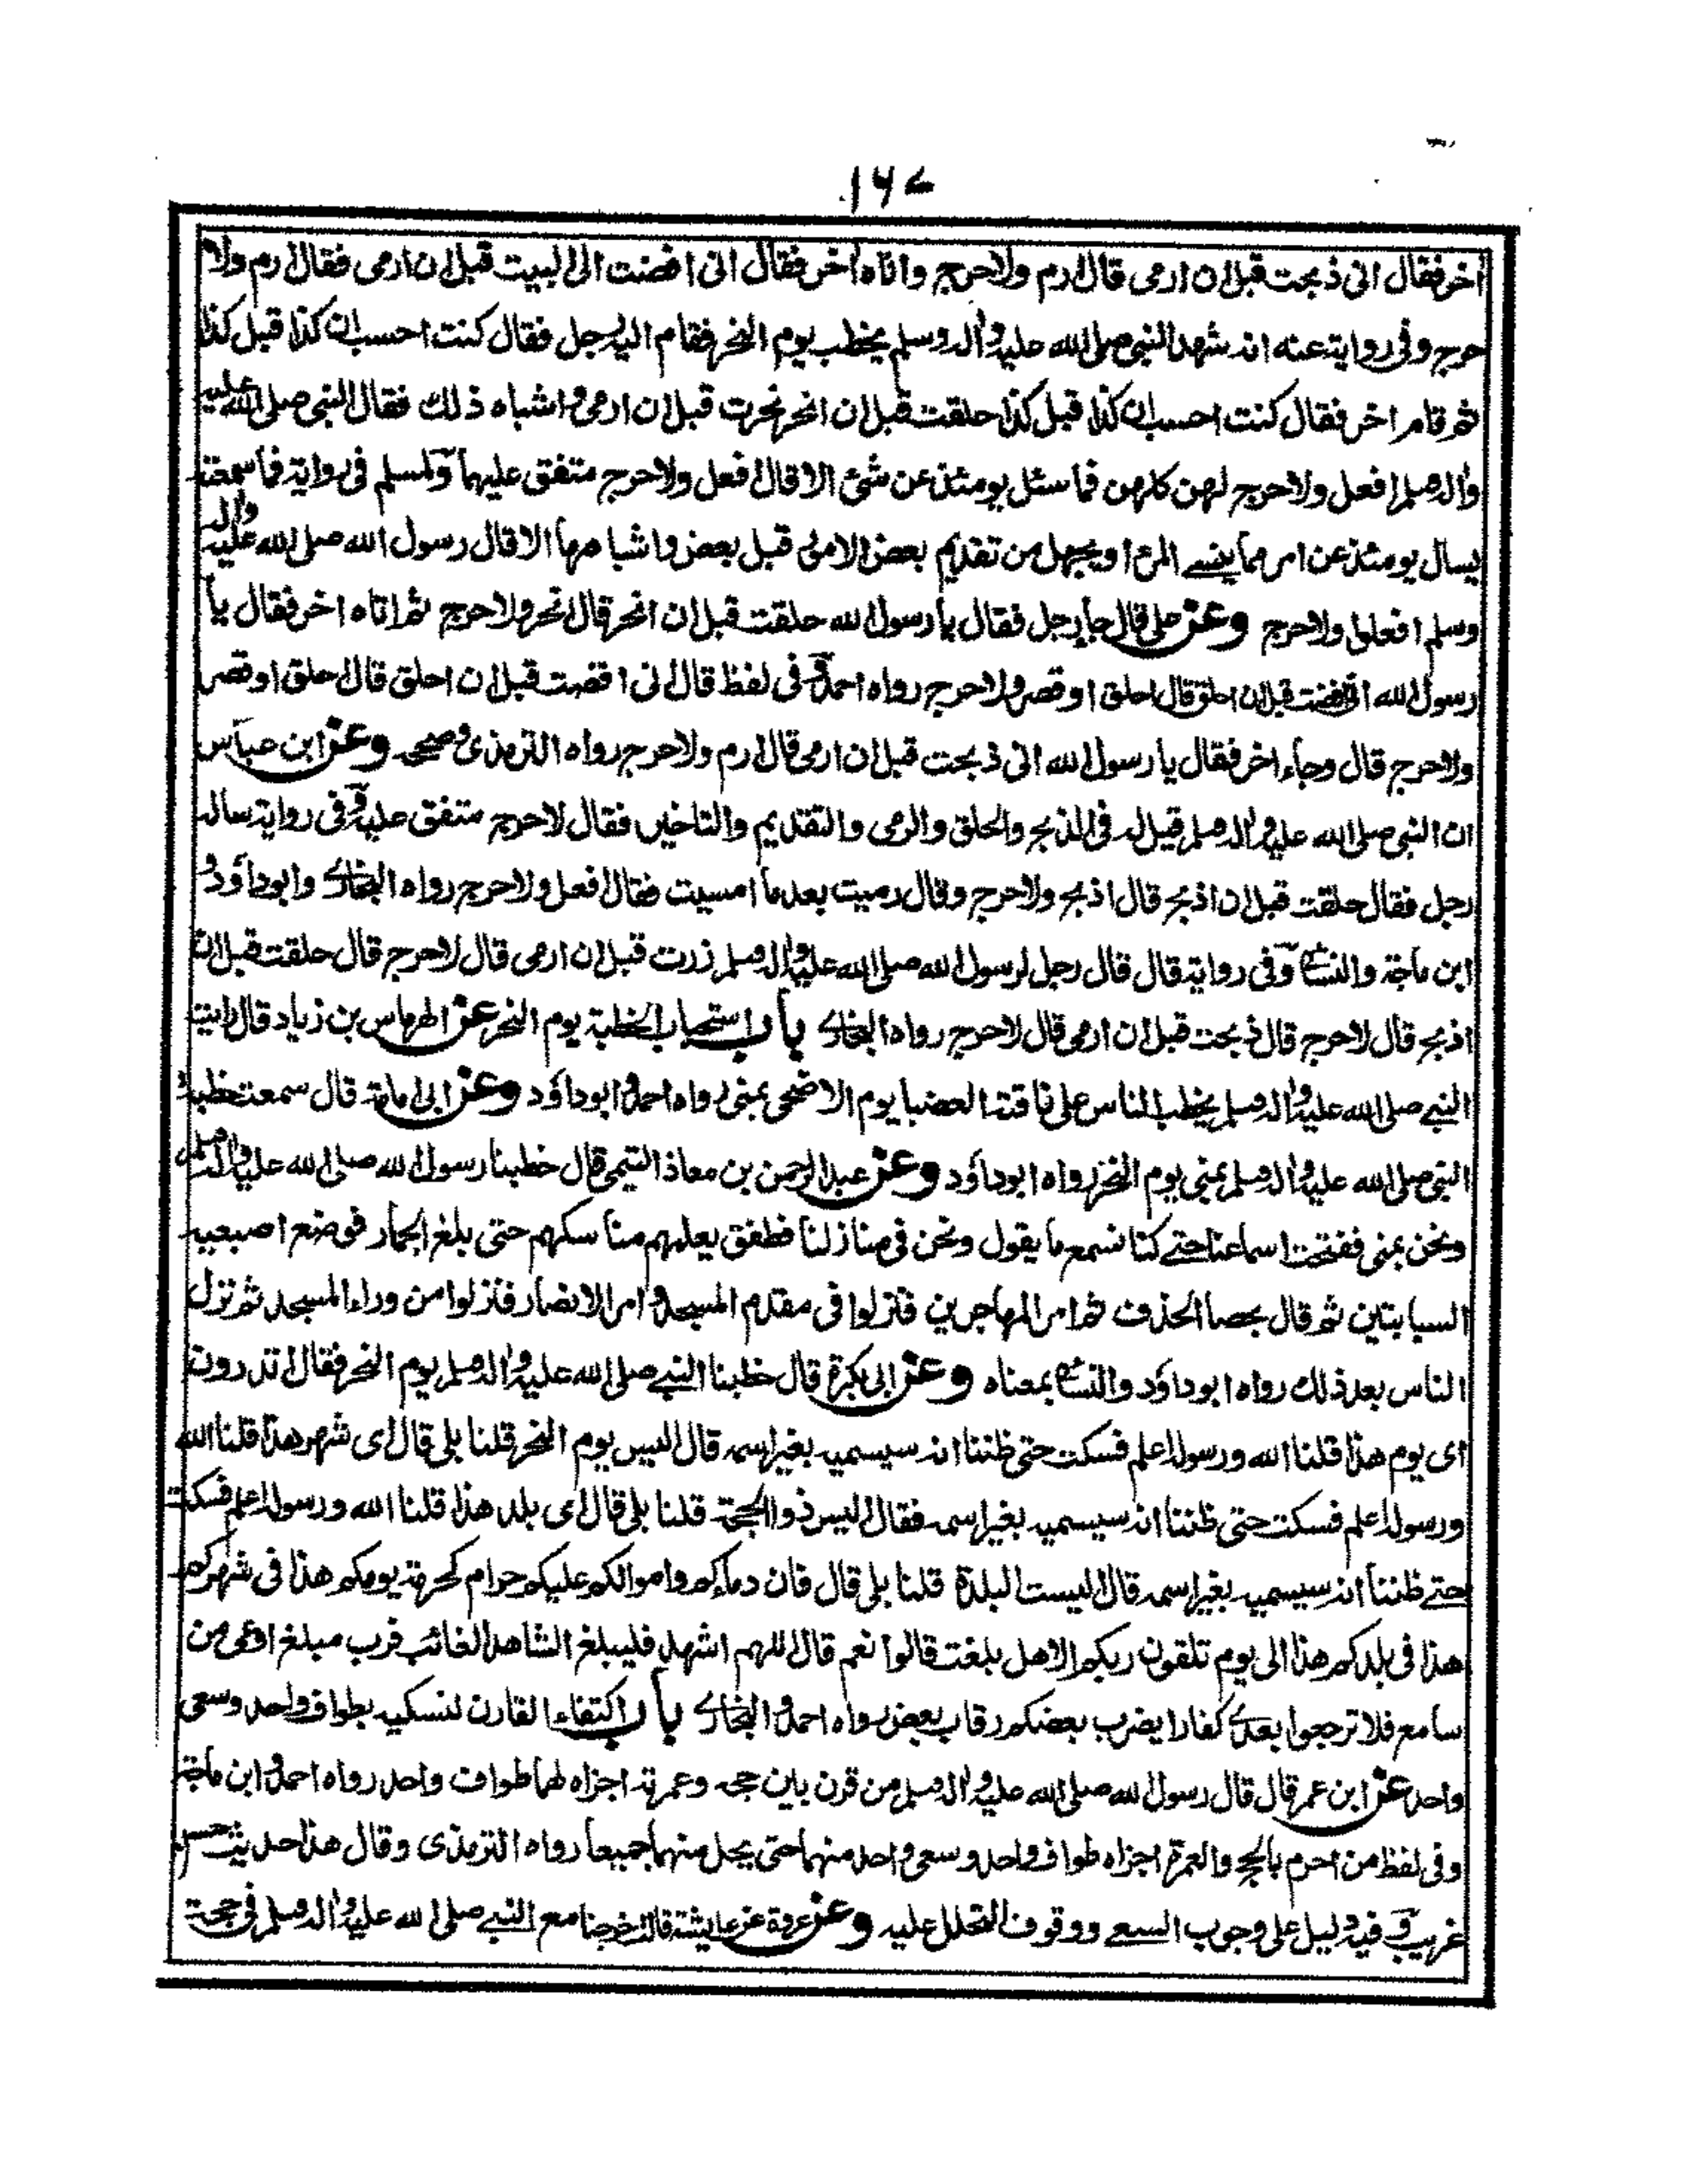 ١٦٧
اخر فقال انى ذبحت قبل ان ارمى قال ارم ولاحرج واتاه اخر فقال انى افضت الى البيت قبل ان ارمى فقال ارم ولا
حرج وفى رواية عنه انه شهد النبى صلى الله عليه واله وسلم يخطب يوم النحر فقام اليه رجل فقال كنت احسب ان كذا قبل كذا
ثم قام اخر فقال كنت احسب ان كذا قبل كذا حلقت قبل ان انحر نحرت قبل ان ارمى واشباه ذلك فقال النبى صلى الله عليه
واله وسلم افعل ولاحرج لهن كلهن فما سئل يومئذ عن شئ الا قال افعل ولاحرج متفق عليهما ولمسلم فى رواية فما سمعته
يسال يومئذ عن امر مما ينسى المرء او يجهل من تقديم بعض الامور قبل بعض واشباهها الا قال رسول الله صلى الله عليه واله
وسلم افعلوا ولاحرج وعن على قال جاء رجل فقال يا رسول الله حلقت قبل ان انحر قال انحر ولاحرج ثم اتاه اخر فقال يا
رسول الله انى افضت قبل ان احلق قال احلق او قصر ولاحرج رواه احمد وفى لفظ قال انى افضت قبل ان احلق قال احلق او قصر
ولاحرج قال وجاء اخر فقال يا رسول الله انى ذبحت قبل ان ارمى قال ارم ولاحرج رواه الترمذى وصححه وعن ابن عباس
ان النبى صلى الله عليه واله وسلم قيل له فى الذبح والحلق والرمى والتقديم والتاخير فقال لاحرج متفق عليه وفى رواية ساله
رجل فقال حلقت قبل ان اذبح قال اذبح ولاحرج وقال رميت بعد ما امسيت فقال افعل ولاحرج رواه البخارى وابوداؤد و
ابن ماجة والنسائى وفى رواية قال قال رجل لرسول الله صلى الله عليه واله وسلم زرت قبل ان ارمى قال لاحرج قال حلقت قبل ان
اذبح قال لاحرج قال ذبحت قبل ان ارمى قال لاحرج رواه البخارى باب استحباب الخطبة يوم النحر عن الهرماس بن زياد قال رايت
النبى صلى الله عليه واله وسلم يخطب الناس على ناقته العضبا يوم الاضحى بمنى رواه احمد وابوداؤد وعن ابى امامة قال سمعت خطبة
النبى صلى الله عليه واله وسلم بمنى يوم النحر رواه ابوداؤد وعن عبد الرحمن بن معاذ التيمى قال خطبنا رسول الله صلى الله عليه واله وسلم
ونحن بمنى ففتحت اسماعنا حتى كنا نسمع ما يقول ونحن فى منازلنا فطفق يعلمهم مناسكهم حتى بلغ الجمار فوضع اصبعيه
السبابتين ثم قال بحصا الخذف ثم امر المهاجرين فنزلوا فى مقدم المسجد وامر الانصار فنزلوا من وراء المسجد ثم نزل
الناس بعد ذلك رواه ابوداؤد والنسائى بمعناه وعن ابى بكرة قال خطبنا النبى صلى الله عليه واله وسلم يوم النحر فقال اتدرون
اى يوم هذا قلنا الله ورسوله اعلم فسكت حتى ظننا انه سيسميه بغير اسمه قال اليس يوم النحر قلنا بلى قال اى شهر هذا قلنا الله
ورسوله اعلم فسكت حتى ظننا انه سيسميه بغير اسمه فقال اليس ذوالحجة قلنا بلى قال اى بلد هذا قلنا الله ورسوله اعلم فسكت
حتى ظننا انه سيسميه بغير اسمه قال اليست البلدة قلنا بلى قال فان دماءكم واموالكم عليكم حرام كحرمة يومكم هذا فى شهركم
هذا فى بلدكم هذا الى يوم تلقون ربكم الا هل بلغت قالوا نعم قال اللهم اشهد فليبلغ الشاهد الغائب فرب مبلغ اوعى من
سامع فلا ترجعوا بعدى كفارا يضرب بعضكم رقاب بعض رواه احمد والبخارى باب اكتفاء القارن لنسكيه بطواف واحد وسعى
واحد عن ابن عمر قال قال رسول الله صلى الله عليه واله وسلم من قرن بين حجه وعمرته اجزاه لهما طواف واحد رواه احمد وابن ماجة
وفى لفظ من احرم بالحج والعمرة اجزاه طواف واحد وسعى واحد منهما حتى يحل منهما جميعا رواه الترمذى وقال هذا حديث حسن
غريب وفيه دليل على وجوب السعى ووقوف التحلل عليه وعن عروة عن عايشة قالت خرجنا مع النبى صلى الله عليه واله وسلم فى حجة